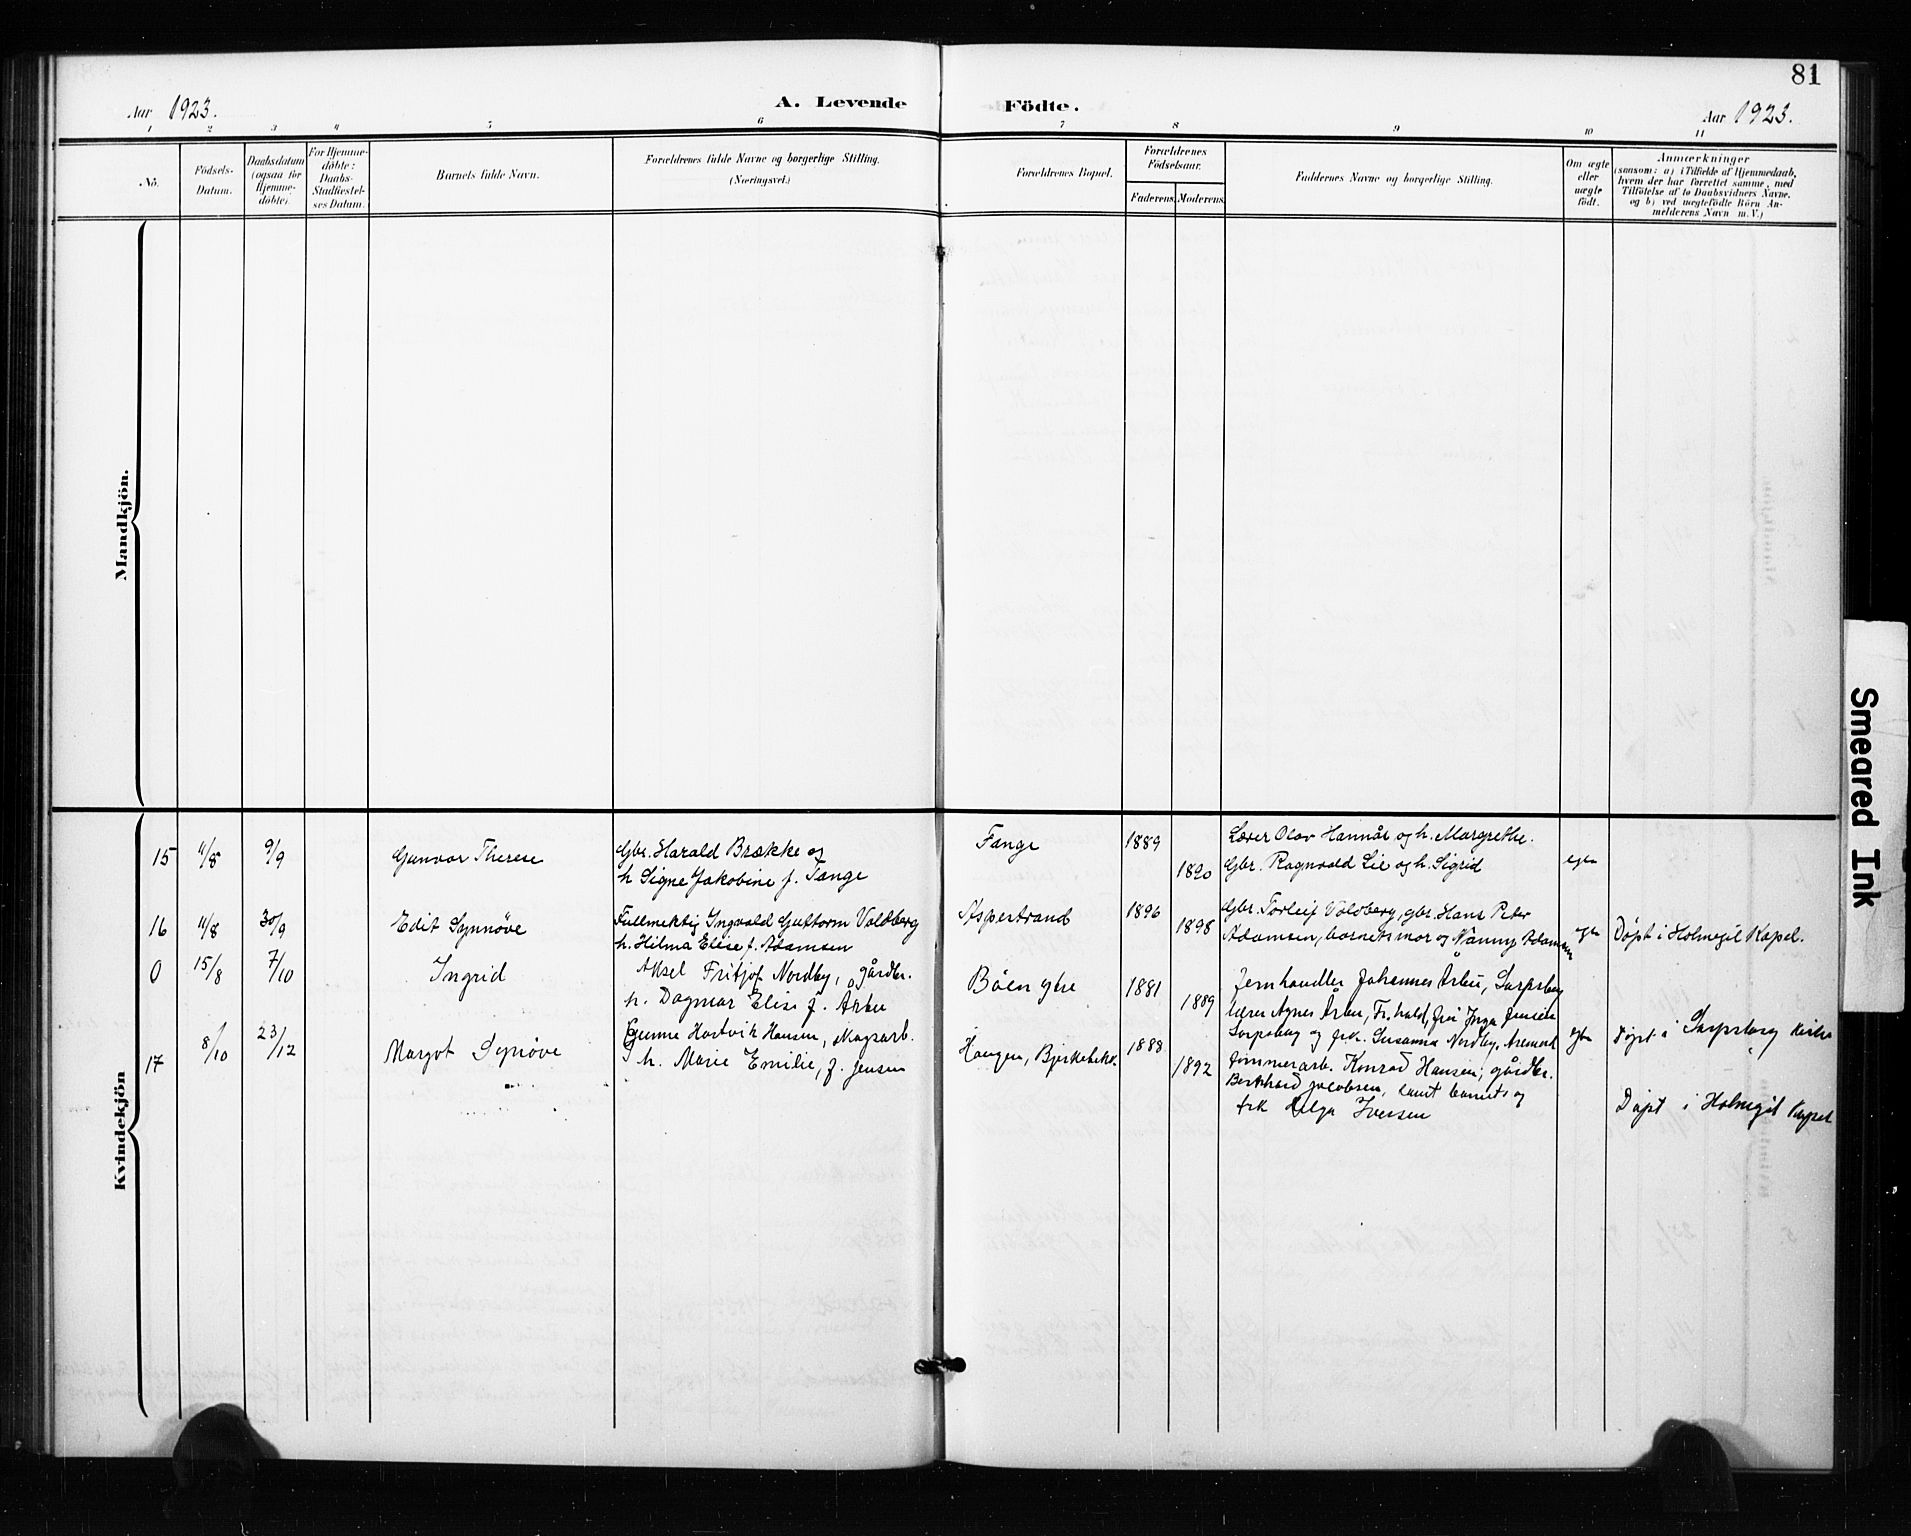 81
Aar 1923.
A. Levende Födte.
Aar 1923.
1 2 3 4 5 6 7 8 9 10 11
No.
Födsels-Datum.
Daabsdatum (ogsaa for Hjemme-döbte).
For Hjemme-döbte: Daabs-Stadfæstel-ses Datum.
Barnets fulde Navn.
Forældrenes fulde Navne og borgerlige Stilling.
(Næringsvei.)
Forældrenes Bopæl.
Forældrenes Födselsaar.
Faderens. Moderens.
Faddernes Navne og borgerlige Stilling.
Om ægte eller uægte födt.
Anmærkninger
(saasom: a) i Tilfælde af Hjemmedaab,
hvem der har forrettet samme, med
Tilföielse af to Daabsvidners Navne,
og b) ved uægtefödte Börn An-
melderens Navn m. V.)
Mandkjön.
Kvindekjön
15 4/8 9/9 Gunvor Therese
Gbr. Harald Brække og
h Signe Jakobine f. Tange
Fange 1889 1890
Lærer Olav Hannår og h. Margrethe.
Gbr. Ragnvald Lie og h. Sigrid
egte
16 11/8 30/9 Edit Synnöve
Fullmektig Ingvald Guttorm Voldberg
h. Hilma Elise f. Adamsen
Aspestrand 1896 1898
Gbr. Torleif Voldberg, gbr. Hans Peter
Adamsen, barnets mor og Nanny Adamsen
egte
Döpt i Holmegil Kapel.
0 15/8 7/10 Ingrid
Aksel Fritjof Nordby, gårdbr.
h. Dagmar Elise f. Arbu
Böen ytre 1881 1889
Jernhandler Johannes Arbu, Sarpsborg
lærer Agnes Arbu, Fr.hald, fru Inga Jensen
Sarpsborg og frk. Susanna Nordby, Aremark
egte
Döpt i Sarpsborg kirke
17 8/10 23/12 Margot Synöve
Hartvik Hansen,
h. Marie Emilie, f. Jensen
Haugen, Bjerkebekk. 1888 1892
Tömmerarb. Konrad Hansen, gårdbr.
Berkhard Jacobsen, samt barnets og
frk Helga Iversen
Döpt i Holmegil Kapel
Smeared Ink